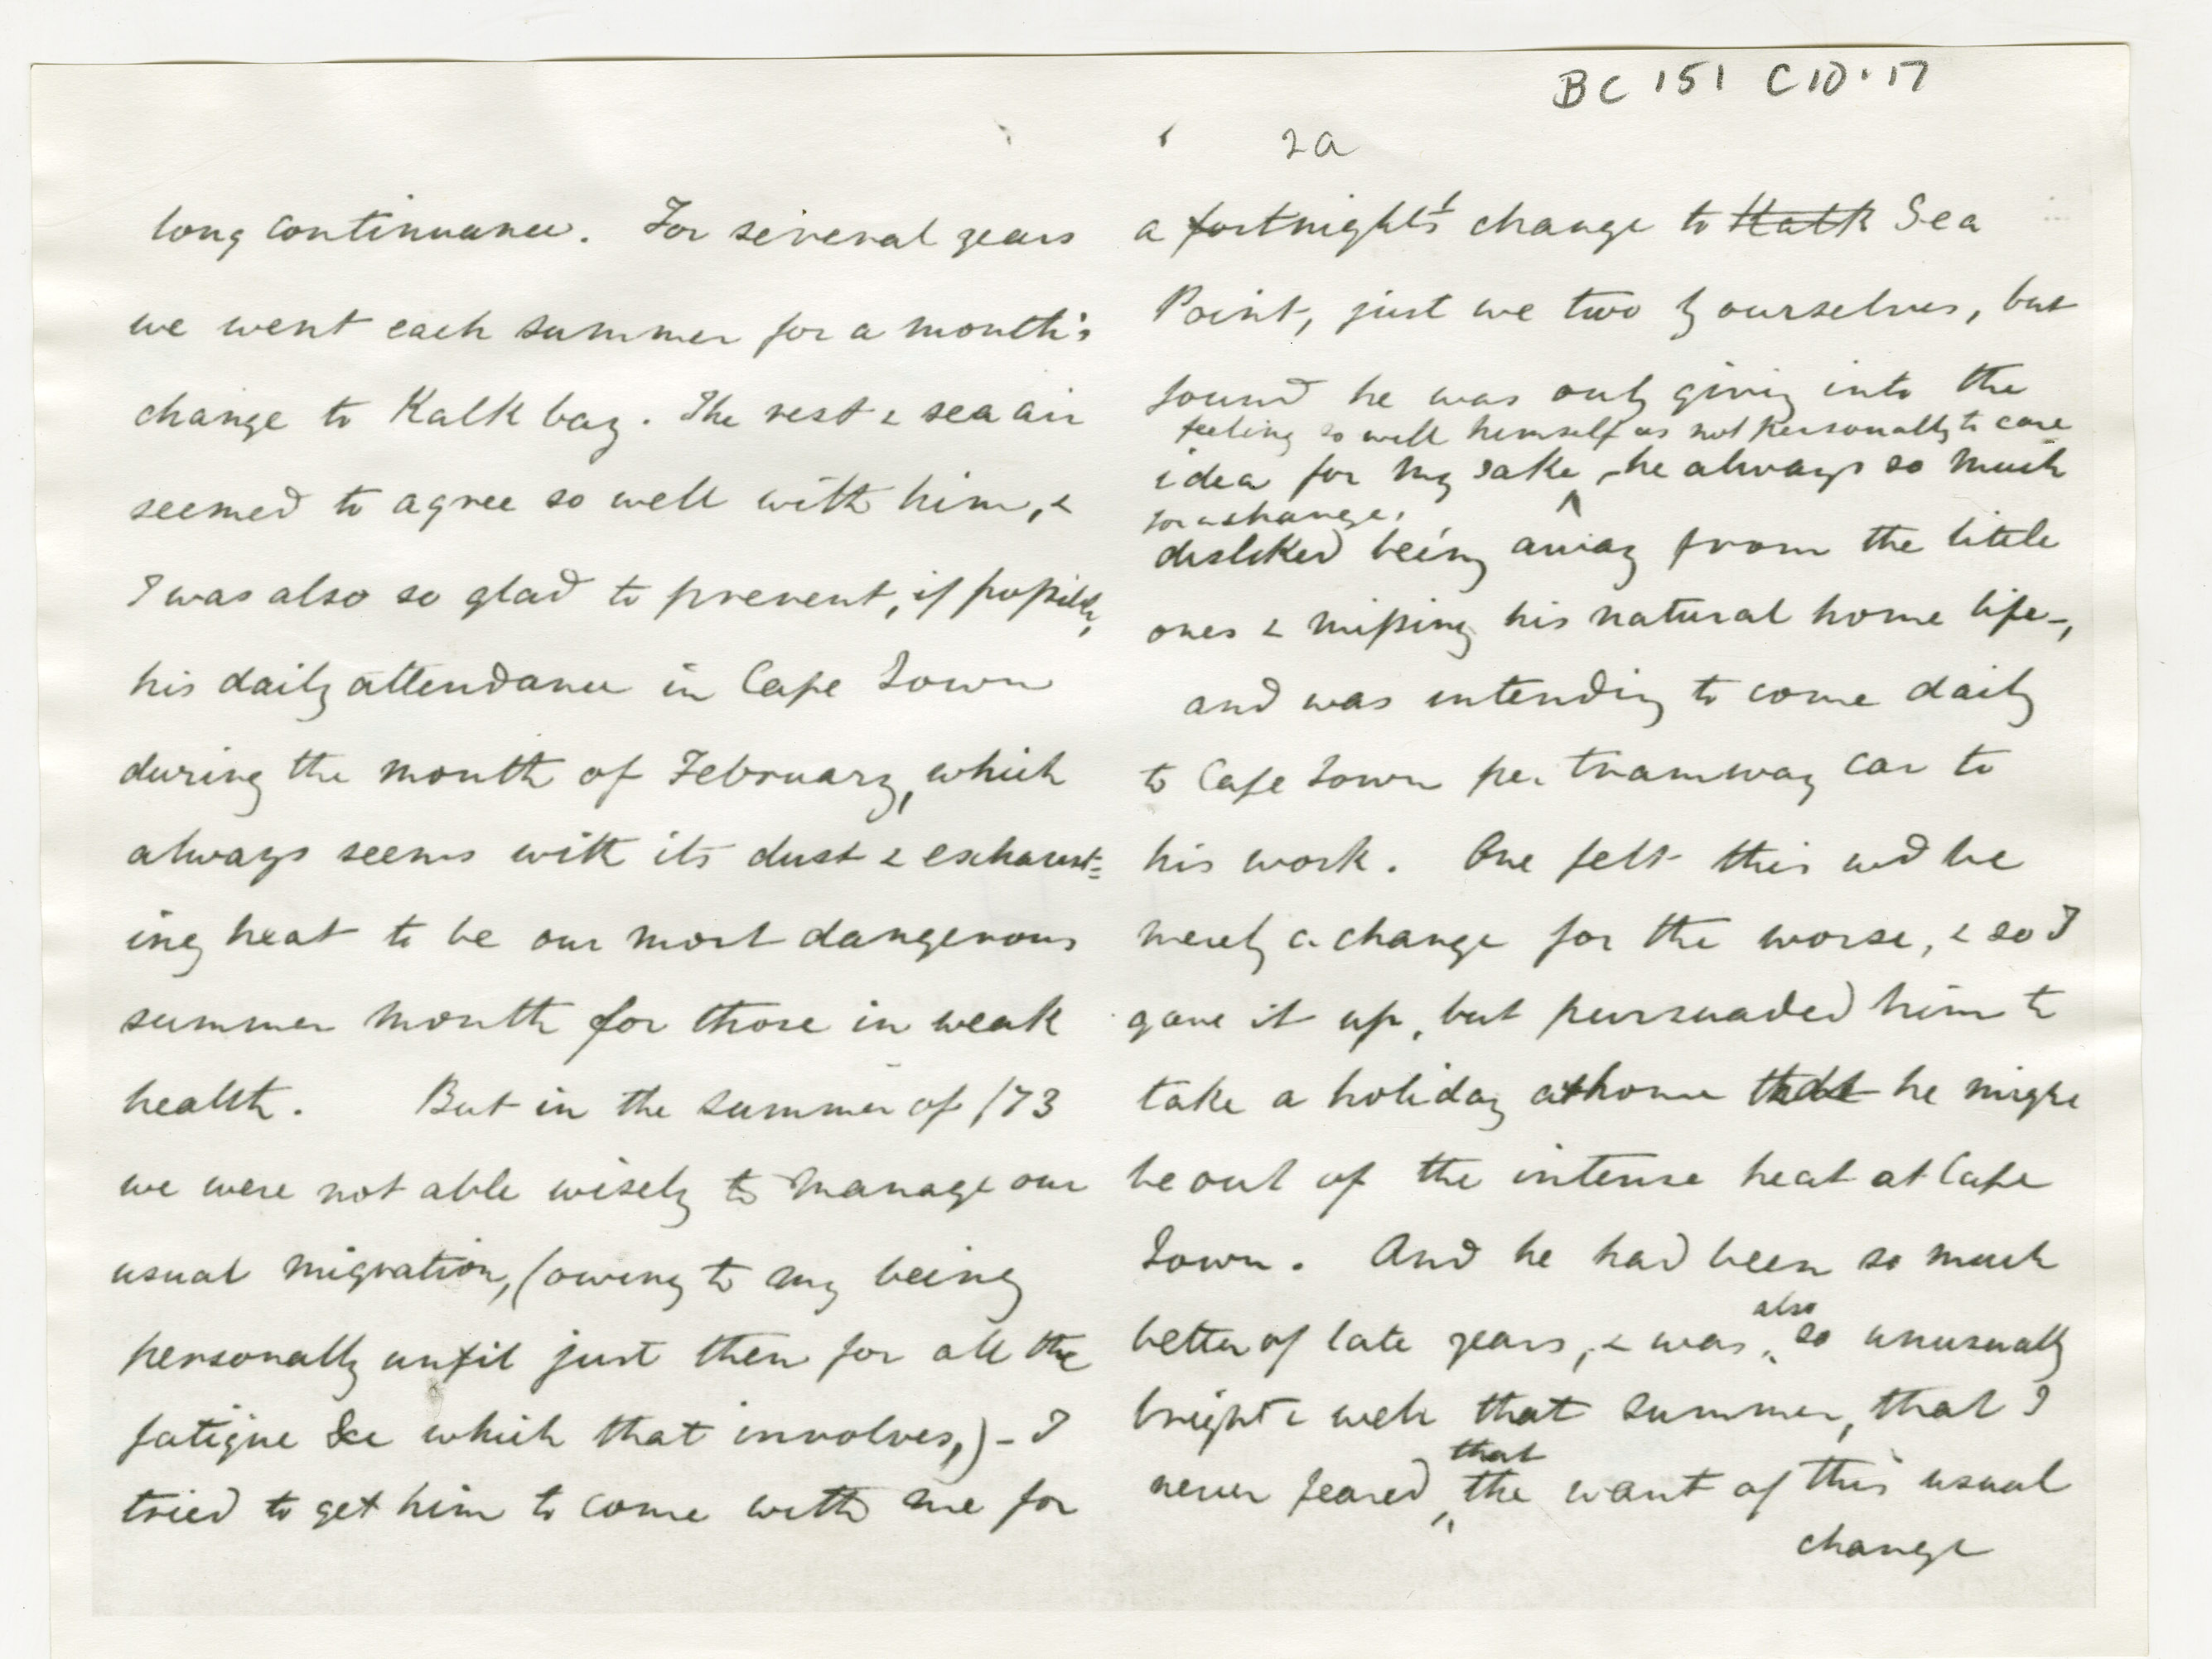 BC 151 C10.17
2a
long continuance. For several years
we went each summer for a month's
change to Kalk bay. The rest & sea air
seemed to agree so well with him, &
I was also so glad to prevent, if possible,
his daily attendance in Cape Town
during the month of February, which
always seems with its dust & exhaust=
ing heat to be our most dangerous
summer month for those in weak
health. But in the summer of /73
we were not able wisely to manage our
usual migration, (owing to my being
personally unfit just then for all the
fatigue &c which that involves,) - I
tried to get him to come with me for
a fortnight's change to Kalk Sea
Point, just we two by ourselves, but
found he was only giving into the
feeling so well himself as not personally to care
idea for my sake, he always so much
for a change,
disliked being away from the little
ones & missing his natural home life-,
and was intending to come daily
to Cape Town per tramway car to
his work. One felt this wd be
merely a change for the worse, & so I
gave it up, but pursuaded him to
take a holiday at home that he might
be out of the intense heat at Cape
Town. And he had been so much
also
better of late years, & was so unusually
bright & well that summer, that I
that
never feared, the want of this usual
change